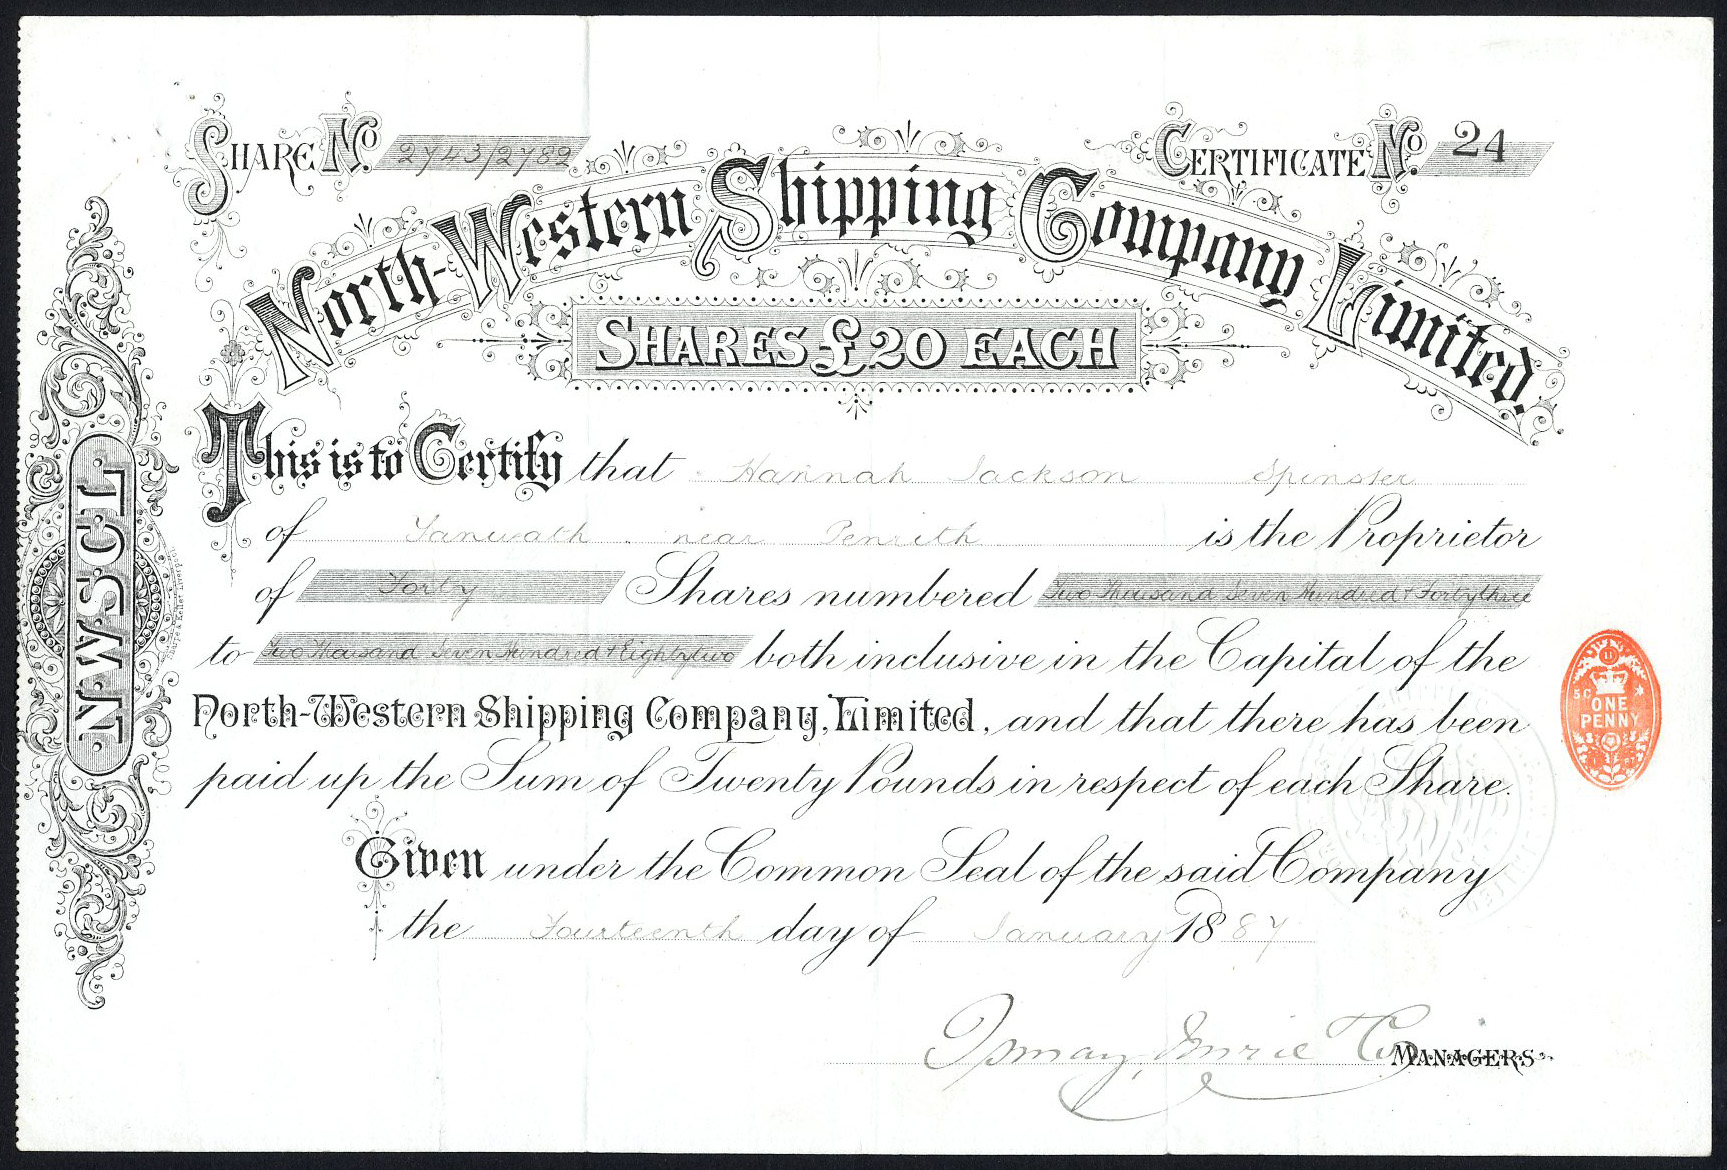 SHARE No. 2743/2782
CERTIFICATE No. 24
North-Western Shipping Company Limited.
SHARES £20 EACH
This is to Certify that Hannah Jackson Spinster
of Yanwath near Penrith is the Proprietor
of Forty Shares numbered Two Thousand Seven Hundred & Fortythree
to Two Thousand Seven Hundred & Eightytwo both inclusive in the Capital of the
North-Western Shipping Company, Limited, and that there has been
paid up the Sum of Twenty Pounds in respect of each Share.
Given under the Common Seal of the said Company
the Fourteenth day of January 1887
Ismay, Imrie & Co MANAGERS
N.W.S.C.L
ONE
PENNY